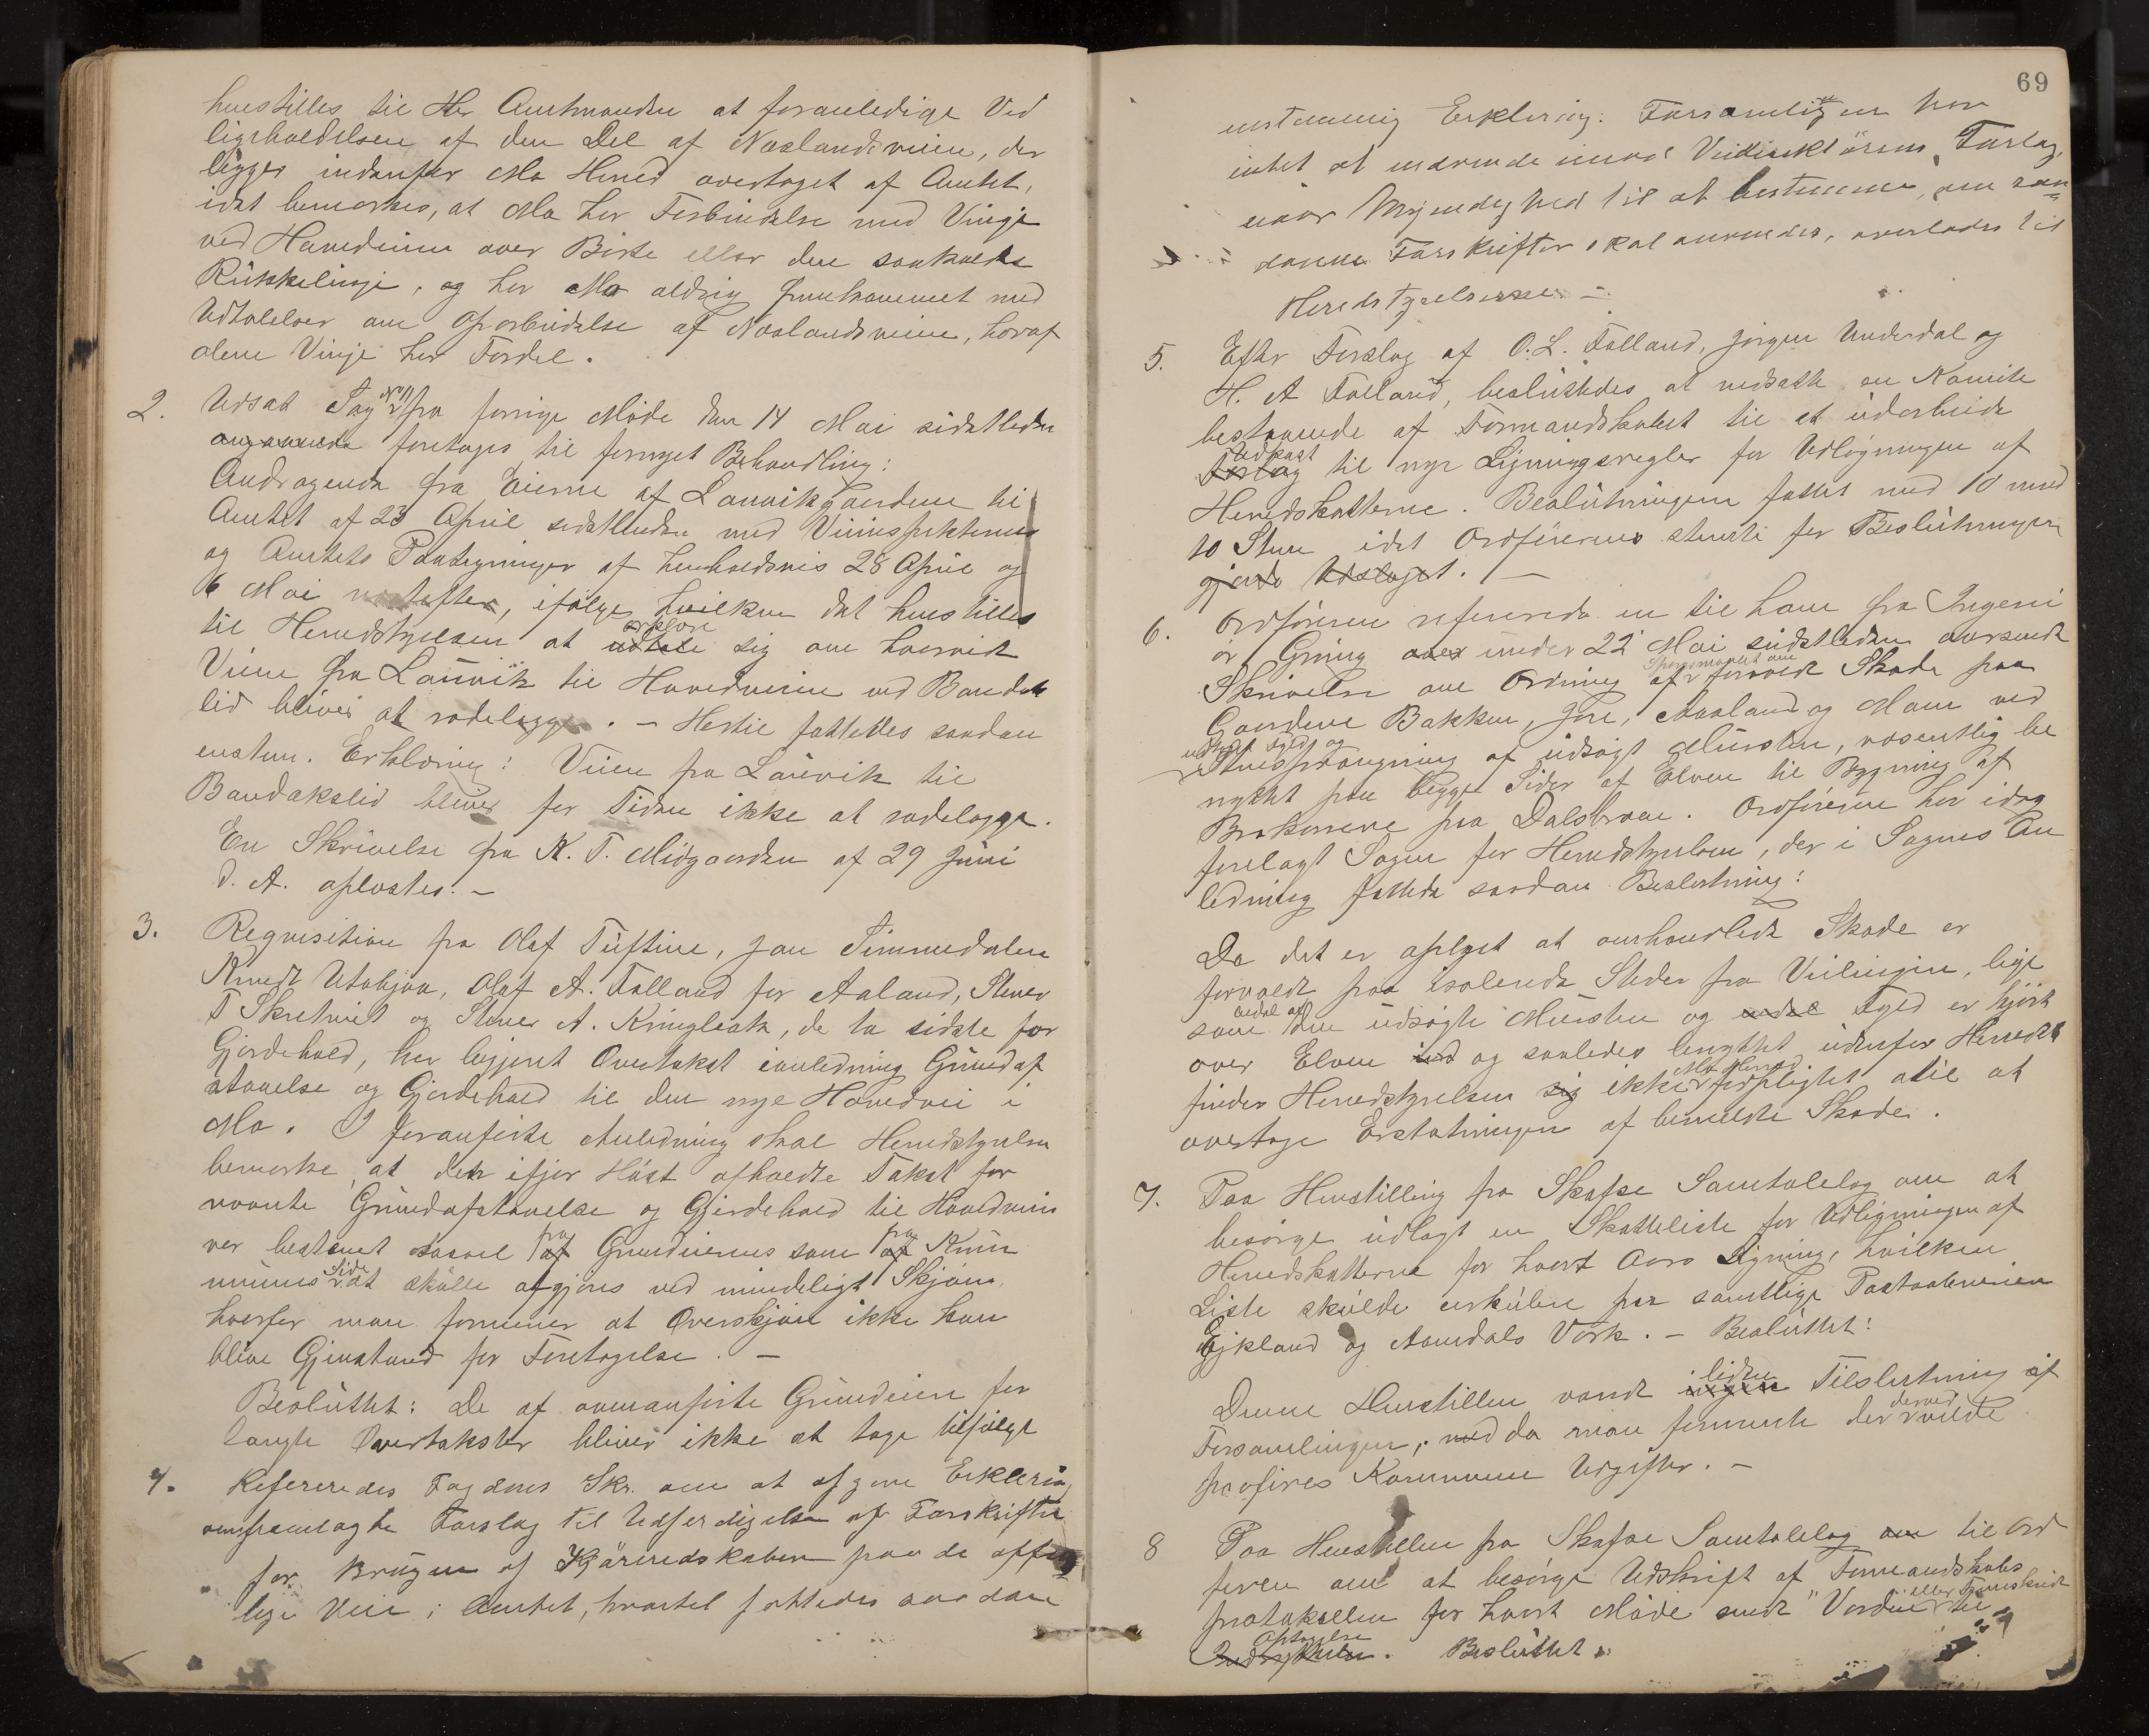 henstilles til Hr Amtmanden at foranledige Ved
ligeholdelsen af den Del af Naslandsveien, der
ligger indenfor Mo Herred overtaget af Amtet,
idet bemærkes, at Mo har Forbindelse med Vinje
ved Hovedveien over Børte eller den saakaldte
Rukkelinje, og har Mo aldrig fremkommet med
Udtalelser om Oparbeidelse af Naslandsveien, hvoraf
alene Vinje har Fordel.
2. Udsat Sag No 11 fra forrige Møde den 14 Mai sidstleden
angaaende foretages til fornyet Behandling:
Andragende fra Eierne af Lauvikgaardene til
Amtet af 23 April sidstleden med Veiinspektørens
og Amtets Paategninger af henholdsvis 28 April og
6 Mai næstefter, ifølge hvilken det henstilles
til Herredstyrelsen at udtale erklære sig om hvorvidt
Veien fra Lauvik til Hovedveien ved Bandaks
lid bliver at rodelægge. – Hertil fattedes saadan
enstem. Erklæring: Veien fra Lauvik til
Bandakslid bliver for Tiden ikke at rodelægge.
En Skrivelse fra K. T. Midgaarden af 29 Juni
d. A. oplæstes. –
3. Requisition fra Olaf Tuftine, Jan Simmedalen
Knudt Utabjaa, Olaf A. Falland for Aaland, Stener
T Skretveit og Stener A. Kringleak, de to sidste for
Gjerdehold, har begjeret Overtakst i anledning Grundaf
staaelse og Gjerdehold til den nye Hovedvei i
Mo. I foranførte Anledning skal Herredstyrelsen
bemærke, at den ifjor Høst afholdte Takst for
nævnte Grundafstaaelse og Gjerdehold til Hovedveien
var bestemt saavel af fra Grundeiernes som af fra Kom
munens Side at skulle afgjøres ved mindeligt Skjøn,
hvorfor man formener at Overskjøn ikke kan
blive Gjenstand for Foretagelse. –
Besluttet: De af ovenanførte Grundeiere for
langte Overtakster bliver ikke at tage tilfølge
4. Refereredes Fogdens Skr. om at afgive Erklæring
om fremlagte Forslag til Udferdigelse af Forskrifter
for Brugen af Kjøreredskaber paa de offent
lige Veie i Amtet, hvortil fattedes saadan
69
enstemmig Erklæring: Forsamlingen har
intet at indvende imod Veidirektørens Forslag,
naar Myndighed til at bestemme, om saa
danne Forskrifter skal anvendes, overlades til
Heredstyrelserne. –
5. Efter Forslag af O. L. Falland, Jørgen Underdal og
H. A Falland, besluttedes at nedsætte en Komite
bestaaende af Formandskabet til at udarbeide
Forslag Udkast til nye Ligningsregler for Udligningen af
Herredskatterne. Beslutningen fattet med 10 mod
10 Stem. idet Ordførerens stemte for Beslutningen
gjorde Udslaget. –
6. Ordføreren refererede en til ham fra Ingeni
ør Gring over under 22 Mai sidstleden oversendt
Skrivelse om Ordning af Spørgsmaalet om forvoldt Skade paa
Gaardene Bakken, Jore, Aasland og Moen ved
udtaget Fyld og
Stensprængning af udsøgt Mursten, væsentlig be
nyttet paa begge Sider af Elven til Bygning af
Brokarrene paa Dalsbroen. Ordføreren har idag
forelagt Sagen for Herredstyrelsen, der i Sagens An
ledning fattede saadan Beslutning:
Da det er oplyst at omhandlede Skade er
forvoldt paa isolerede Steder fra Veilinjen, lige
som endel af den udsøgte Mursten og endel Fyld er kjørt
over Elven ind og saaledes benyttet udenfor Herredet
finder Herredstyrelsen sig ikke Mo Herred forpligtet at til at
overtage Erstatningen af bemeldte Skade.
7. Paa Henstilling fra Skafse Samtalelag om at
besørge udlagt en Skatteliste for Udligningen af
Herredskatterne for hvert Aars Ligning, hvilken
Liste skulde cirkulere paa samtlige Postaabnerier
Eikland og Aamdals Værk. – Besluttet:
Denne Henstillen vandt ingen liden Tilslutning af
Forsamlingen, med da man formente der derved vilde
paaføres Kommunen Udgifter. –
8 Paa Henstillen fra Skafse Samtalelag om til Ord
føren om at besørge Udskrift af Formandskabs
protokollen for hvert Møde sendt "Varden eller Fremskridt til
Indrykkelse Optagelse. Besluttet: